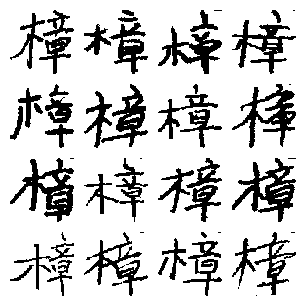 樟樟樟樟
樟樟樟樟
樟樟樟樟
樟樟樟樟